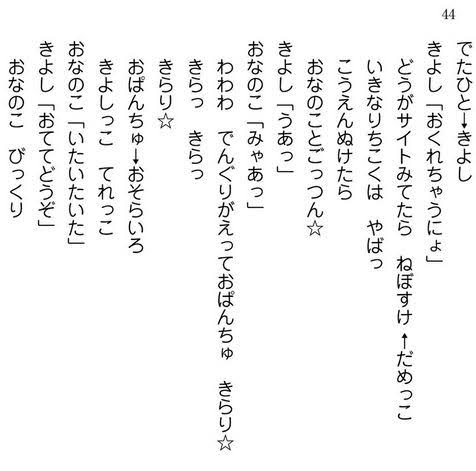 44
でたひと→きよし
きよし「おくれちゃうにょ」
どうがサイトみてたら　ねぼすけ　←だめっこ
いきなりちこくは　やばっ
こうえんぬけたら
おなのことごっつん☆
きよし「うあっ」
おなのこ「みゃあっ」
わわわ　でんぐりがえっておぱんちゅ　きらり☆
きらっ　きらっ
きらり☆
おぱんちゅ→おそらいろ
きよしっこ　てれっこ
おなのこ「いたいたいた」
きよし「おててどうぞ」
おなのこ　びっくり